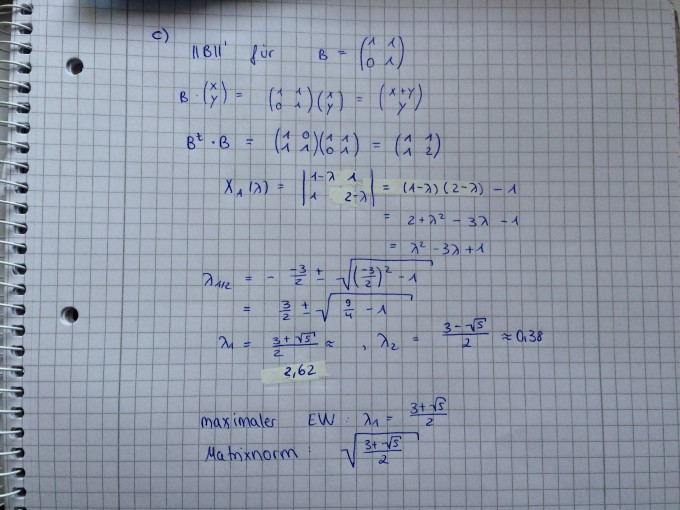 c)
||B||' für B = (1 1 / 0 1)
B · (x / y) = (1 1 / 0 1)(x / y) = (x+y / y)
Bᵗ · B = (1 0 / 1 1)(1 1 / 0 1) = (1 1 / 1 2)
X₁(λ) = |1-λ 1 / 1 2-λ| = (1-λ)(2-λ) - 1
= 2 + λ² - 3λ - 1
= λ² - 3λ + 1
λ₁/₂ = - -3/2 ± √((-3/2)² - 1)
= 3/2 ± √(9/4 - 1)
λ₁ = (3+√5)/2 ≈ 2,62 , λ₂ = (3-√5)/2 ≈ 0,38
maximaler EW : λ₁ = (3+√5)/2
Matrixnorm : √((3+√5)/2)